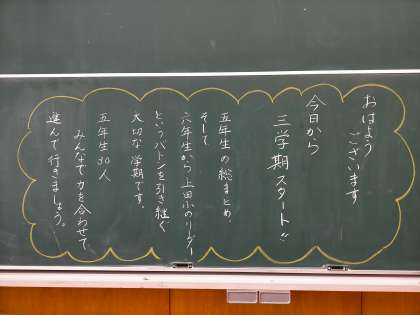 おはよう
ございます
今日から
三学期スタート!!
五年生の総まとめ、
そして
六年生から上田小のリーダー
というバトンを引き継ぐ
大切な学期です。
五年生30人
みんなで力を合わせて
進んで行きましょう。